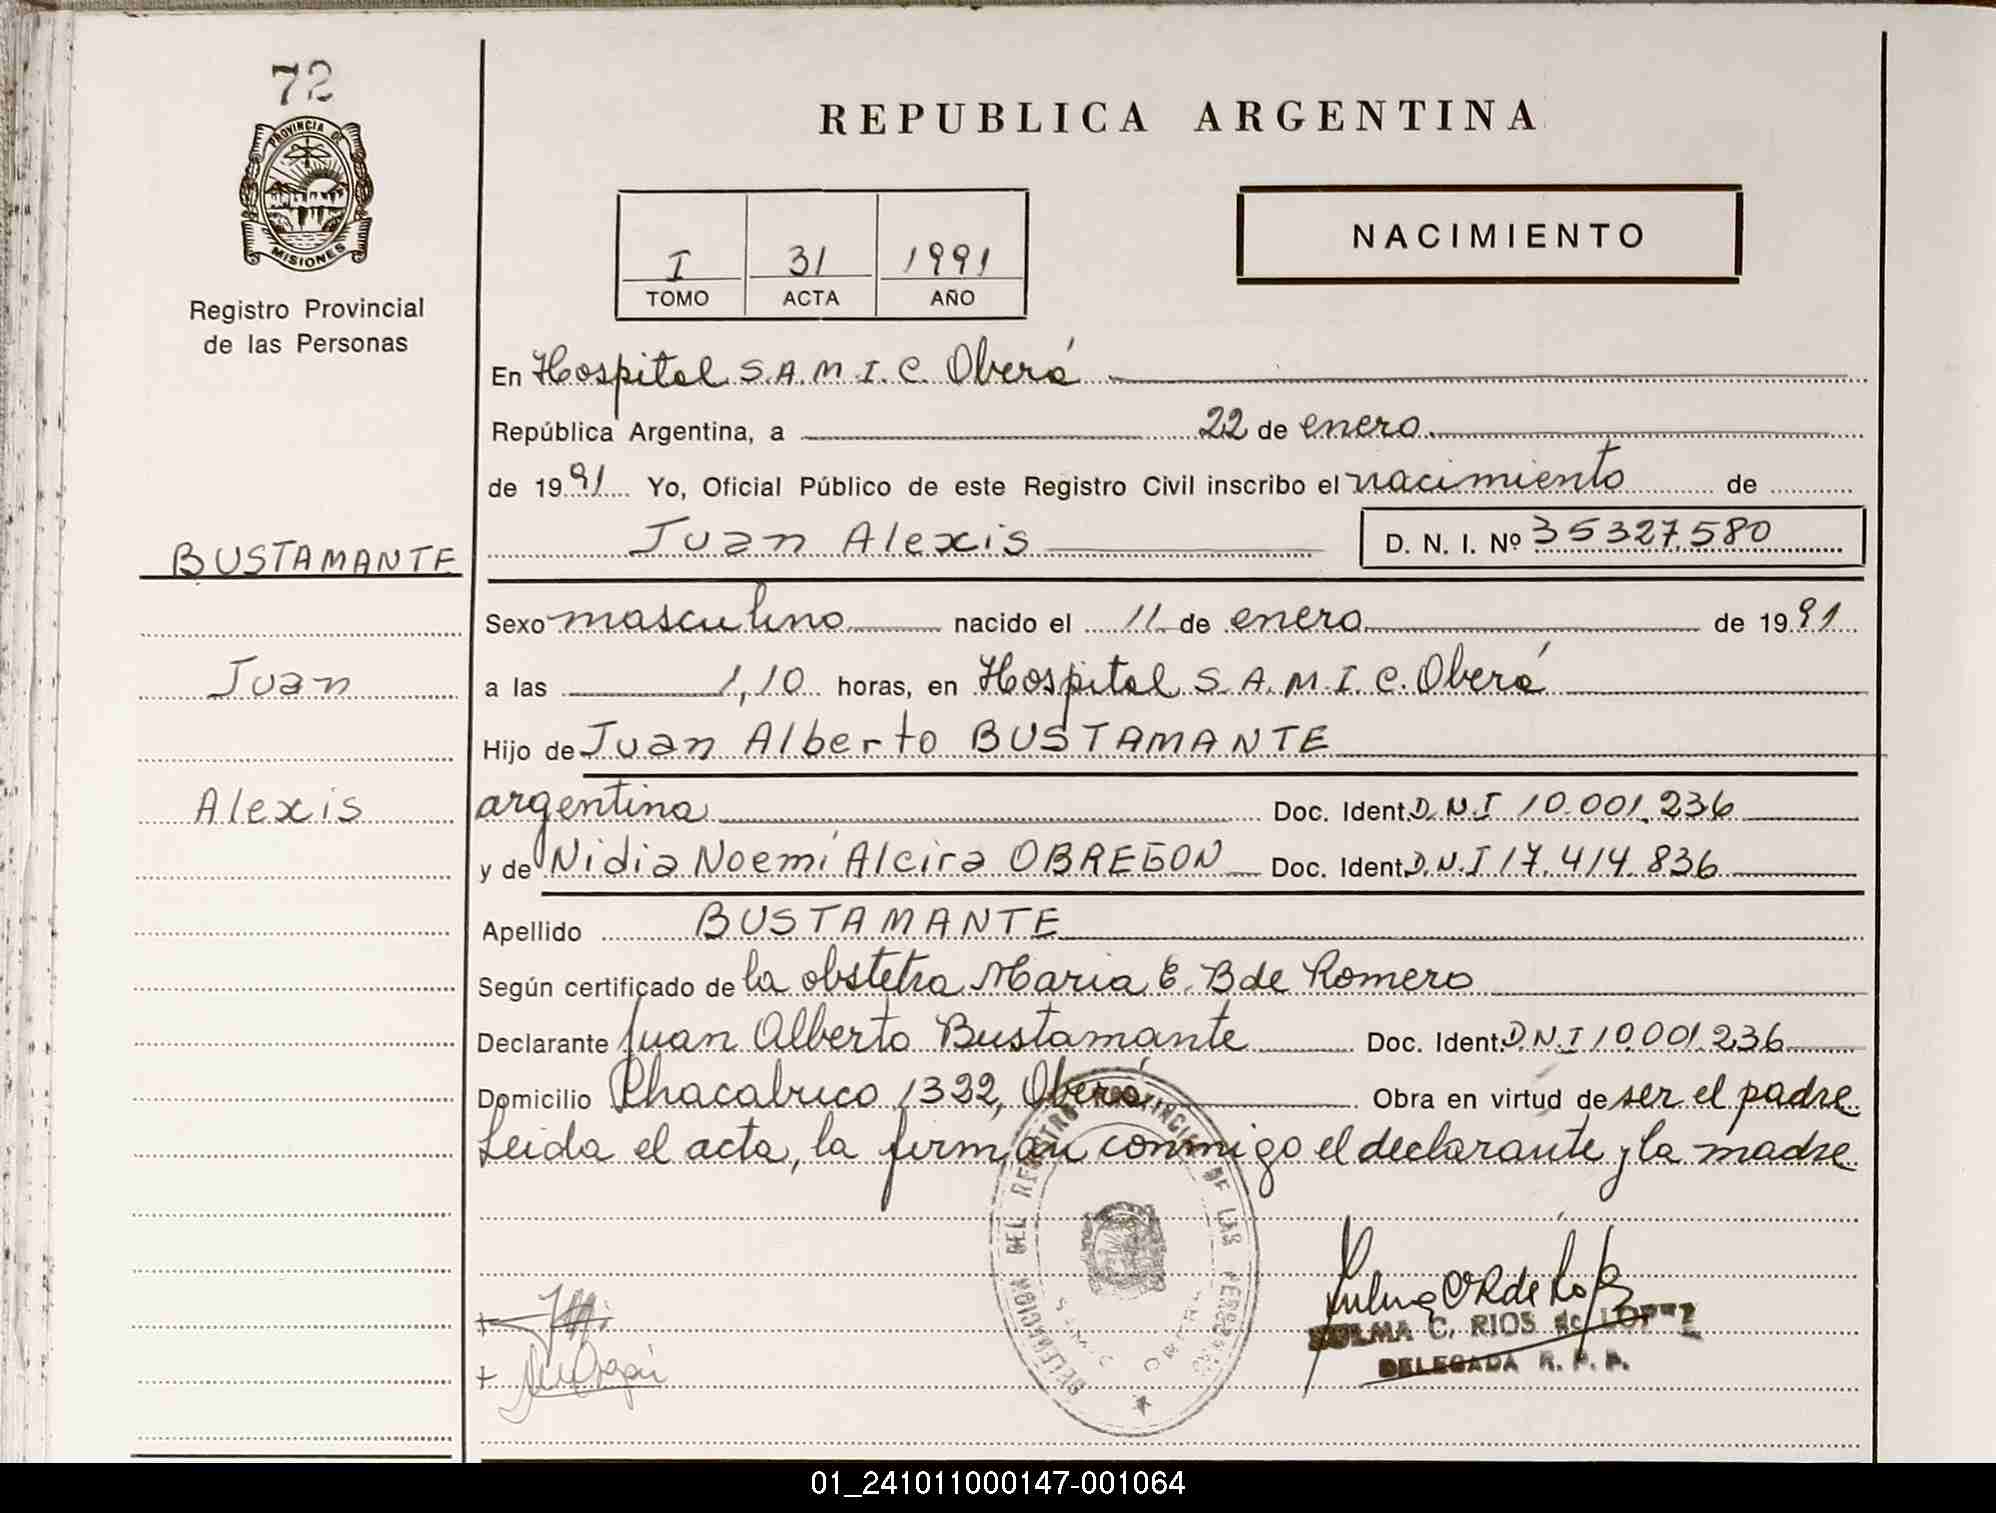 72
PROVINCIA DE
MISIONES
Registro Provincial
de las Personas
BUSTAMANTE
Juan
Alexis
REPUBLICA ARGENTINA
I 31 1991
TOMO ACTA AÑO
NACIMIENTO
En Hospital S.A.M.I.C. Oberá
República Argentina, a 22 de enero
de 1991 Yo, Oficial Público de este Registro Civil inscribo el nacimiento de
Juan Alexis D. N. I. Nº 35327.580
Sexo masculino nacido el 11 de enero de 1991
a las 1,10 horas, en Hospital S.A.M.I.C. Oberá
Hijo de Juan Alberto BUSTAMANTE
argentina Doc. Ident. D.N.I 10.001.236
y de Nidia Noemí Alcira OBREGON Doc. Ident. D.N.I 17.414.836
Apellido BUSTAMANTE
Según certificado de la obstetra Maria E. B de Romero
Declarante Juan Alberto Bustamante Doc. Ident. D.N.I 10.001.236
Domicilio Chacabuco 1322, Oberá Obra en virtud de ser el padre
Leida el acta, la firman conmigo el declarante y la madre
DELEGACION DEL REGISTRO PROVINCIAL DE LAS PERSONAS
S.A.M.I.C. OBERA
SULMA C. RIOS de LOPEZ
DELEGADA R. P. P.
01_241011000147-001064